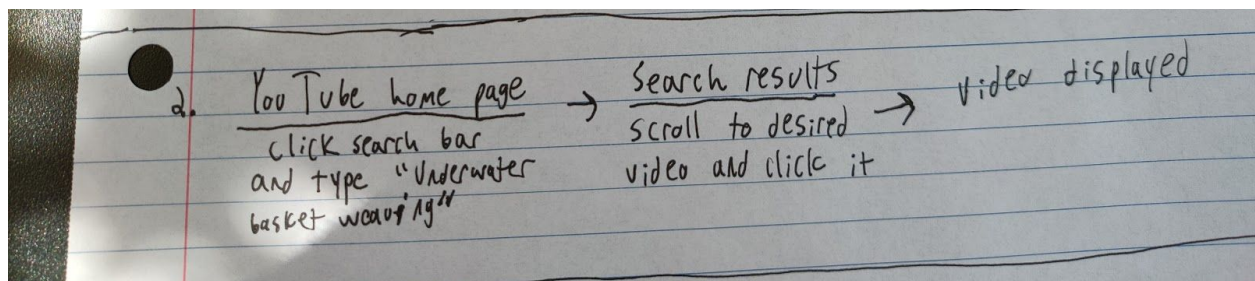 2. YouTube home page → Search results → video displayed
click search bar
and type "Underwater
basket weaving"
scroll to desired
video and click it